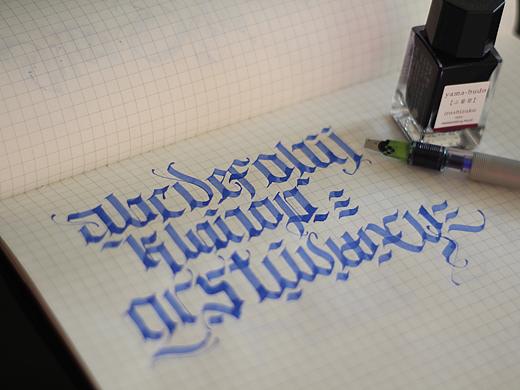 abcdefghij
klmnop
qrstuvwxyz
yama-budo
iroshizuku